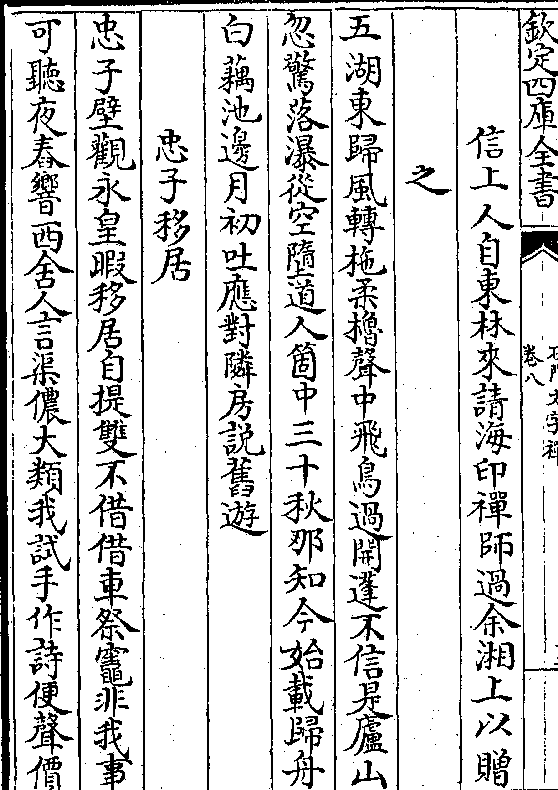 欽定四庫全書
石門文字禪
卷八
信上人自東林來請海印禪師過余湘上以贈
之
五湖東歸風轉柂柔擼聲中飛鳥過開蓬不信是廬山
忽驚落瀑從空墮道人箇中三十秋那知今始載歸舟
白藕池邊月初吐應對隣房説舊遊
忠子移居
忠子壁觀永皇暇移居自提雙不借借車祭竈非我事
可聽夜舂響西舍人言渠儂大類我試手作詩便聲價